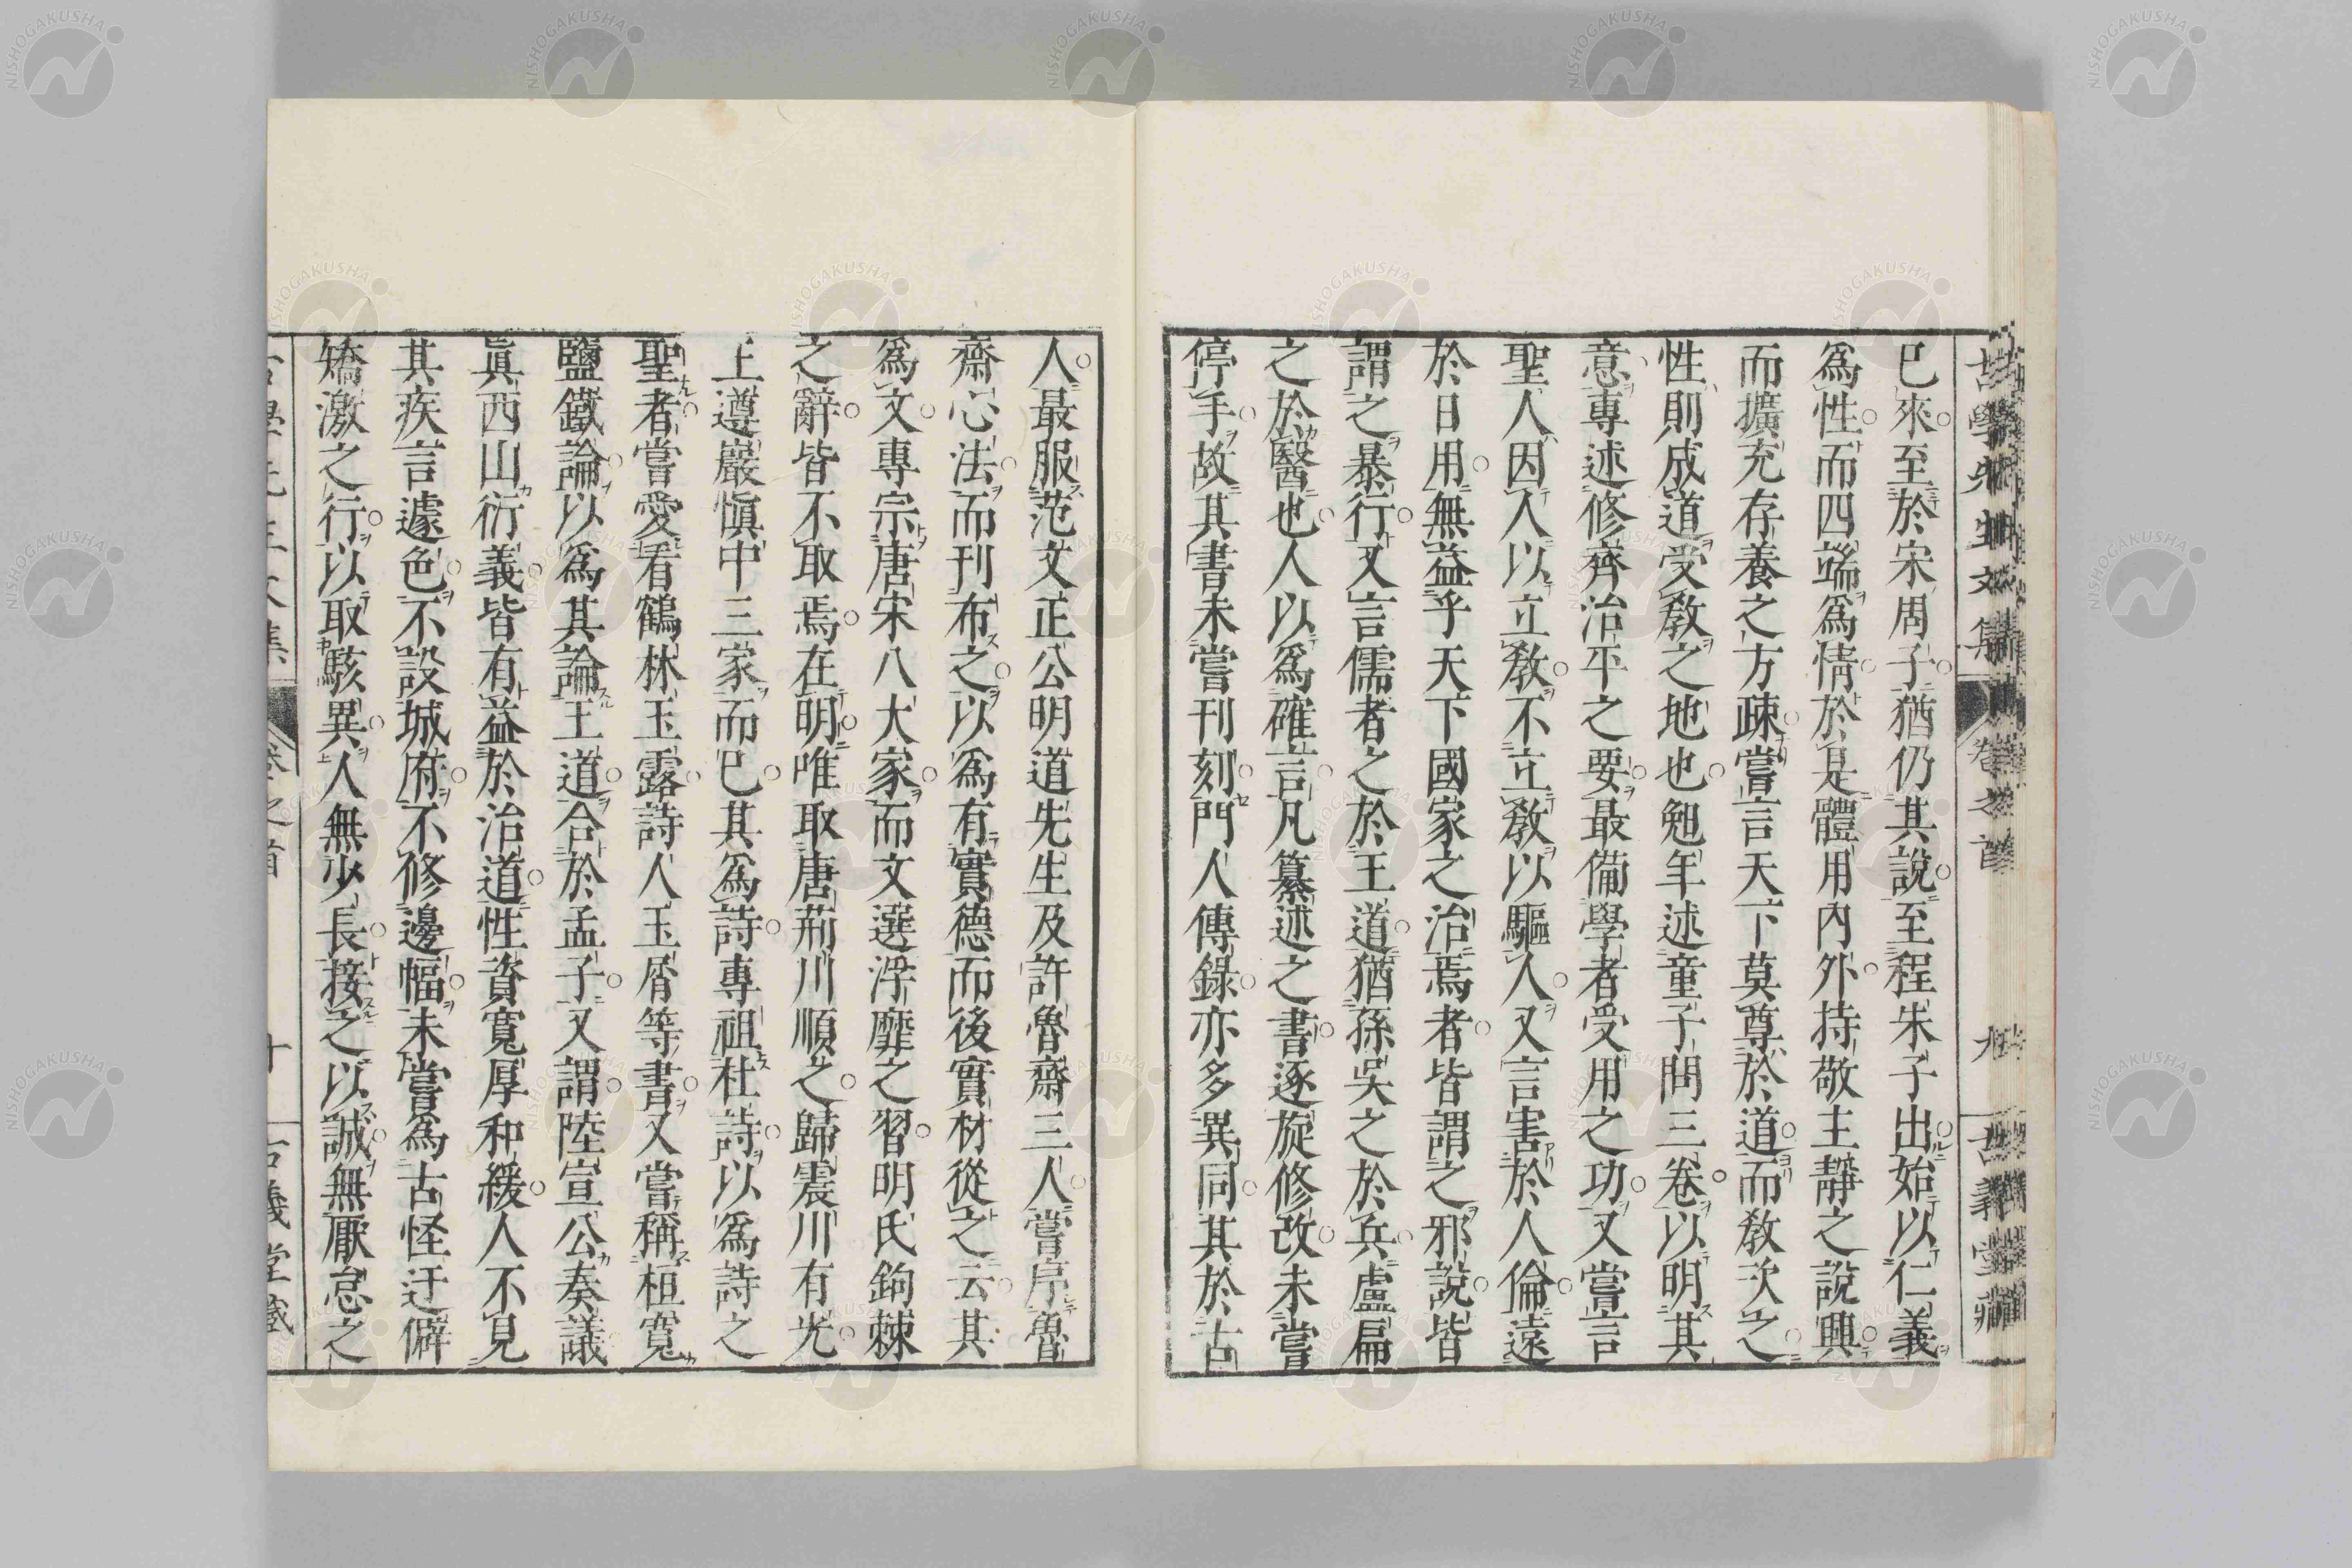 古學先生文集 卷之首 九 古義堂藏
已來至於宋周子猶仍其說至程朱子出始以仁義
爲性而四端爲情於是體用內外持敬主靜之說興
而擴充存養之方疎嘗言天下莫尊於道而敎次之
性則成道受敎之地也勉年述童子問三卷以明其
意專述修齊治平之要最備學者受用之功又嘗言
聖人因人以立敎不立敎以驅人又言害於人倫遠
於日用無益乎天下國家之治焉者皆謂之邪說皆
謂之暴行又言儒者之於王道猶孫吳之於兵盧扁
之於醫也人以爲確言凡纂述之書逐旋修改未嘗
停手故其書未嘗刊刻門人傳錄亦多異同其於古
人最服范文正公明道先生及許魯齋三人嘗序魯
齋心法而刊布之以爲有實德而後實材從之云其
爲文專宗唐宋八大家而文選浮靡之習明氏鉤棘
之辭皆不取焉在明唯取唐荊川順之歸震川有光
王遵巖愼中三家而已其爲詩專祖杜詩以爲詩之
聖者嘗愛看鶴林玉露詩人玉屑等書又嘗稱桓寬
鹽鐵論以爲其論王道合於孟子又謂陸宣公奏議
眞西山衍義皆有益於治道性資寬厚和緩人不見
其疾言遽色不設城府不修邊幅未嘗爲古怪迂僻
矯激之行以取駭異人無少長接之以誠無厭怠之
古學先生文集 卷之首 十 古義堂藏
NISHOGAKUSHA